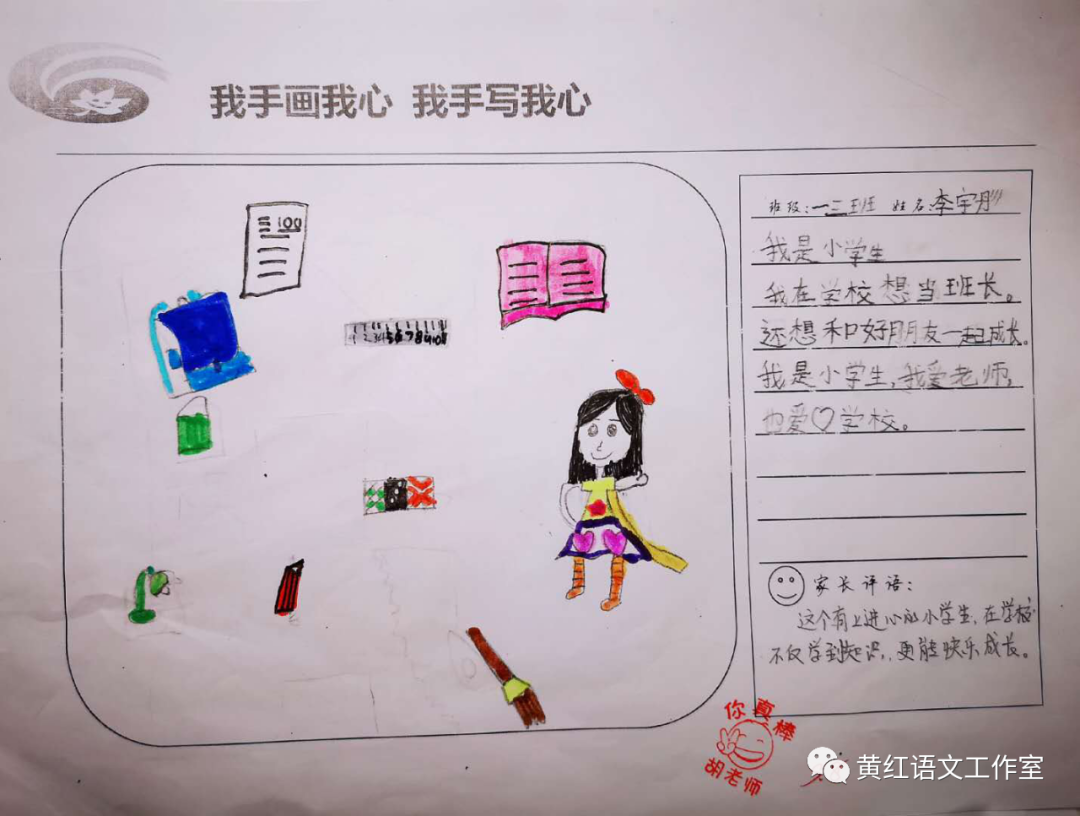 我手画我心 我手写我心
100
1 2 3 4 5 6 7 8 9 10
班级:一三班 姓名:李宇彤
我是小学生
我在学校想当班长。
还想和好朋友一起成长。
我是小学生,我爱老师,
也爱♡学校。
家长评语:
这个有上进心的小学生,在学校
不仅学到知识,更能快乐成长。
你真棒
胡老师
黄红语文工作室